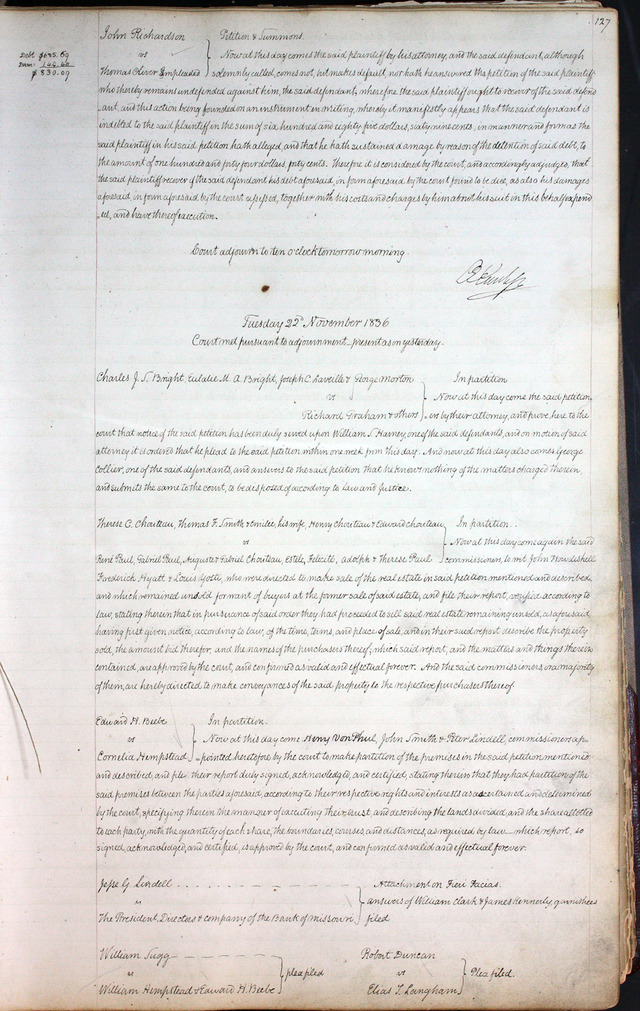 127
John Richardson } Petition & Summons.
vs Now at this day comes the said plaintiff by his attorney, and the said defendant, although
Debt $685.69
Dam: 144.40
$830.09
Thomas Oliver Impleaded solemnly called, comes not, but makes default, nor hath he answered the petition of the said plaintiff
who thereby remains undefended against him, the said defendant, wherefore the said plaintiff ought to recover of the said defend
ant, and this action being founded on an instrument in writing, whereby it manifestly appears that the said defendant is
indebted to the said plaintiff in the sum of six hundred and eighty five dollars, sixty nine cents, in manner and form as the
said plaintiff in his said petition hath alleged, and that he hath sustained damage by reason of the detention of said debt, to
the amount of one hundred and forty four dollars forty cents. Therefore it is considered by the court, and accordingly adjudges, that
the said plaintiff recover of the said defendant his debt aforesaid, in form aforesaid by the court found to be due, as also his damages
aforesaid in form aforesaid by the court assessed, together with his costs and charges by him about his suit in this behalf expend
ed, and have thereof execution.
Court adjourn to ten o'clock tomorrow morning.
Tuesday 22d November 1836
Court met pursuant to adjournment present as on yesterday.
Charles J. S. Bright, Eulalie M. A. Bright, Joseph C. Laveille & George Morton } In partition
vs Now at this day come the said petition
Richard Graham & others ers by their attorney, and prove here to the
court that notice of the said petition has been duly served upon William S. Harney, one of the said defendants, and on motion of said
attorney it is ordered that he plead to the said petition within one week from this day. And now at this day also comes George
Collier, one of the said defendants, and answers to the said petition that he knows nothing of the matters charged therein,
and submits the same to the court, to be disposed of according to Law and Justice.
Therese C. Chouteau, Thomas F. Smith & Emilie, his wife, Henry Chouteau & Edward Chouteau } In partition.
vs Now at this day come again the said
René Paul, Gabriel Paul, Auguste & Gabriel Chouteau, Estele, Felicité, Adolph & Therese Paul commissioners, to wit John Howdeshell
Frederick Hyatt & Louis Yosti, who were directed to make sale of the real estate in said petition mentioned and described,
and which remained unsold for want of buyers at the former sale of said estate, and file their report, verified according to
law, stating therein that in pursuance of said order they had proceeded to sell said real estate remaining unsold, as aforesaid
having first given notice, according to law, of the time, terms, and place of sale, and in their said report describe the property
sold, the amount bid therefor, and the names of the purchasers thereof, which said report, and the matters and things therein
contained, are approved by the court, and confirmed as valid and effectual forever. And the said commissioners, or a majority
of them, are hereby directed to make conveyances of the said property to the respective purchasers thereof.
Edward H. Beebe } In partition.
vs Now at this day come Henry Von Phul, John Smith & Peter Lindell, commissioners ap
Cornelia Hempstead pointed heretofore by the court to make partition of the premises in the said petition mentioned
and described, and file their report duly signed, acknowledged, and certified, stating therein that they had partition of the
said premises between the parties aforesaid, according to their respective rights and interests as ascertained and determined
by the court, specifying therein the manner of executing their trust, and describing the lands divided, and the share allotted
to each party, with the quantity of each share, the boundaries, courses, and distances, as required by law which report, so
signed, acknowledged, and certified, is approved by the court, and confirmed as valid and effectual forever.
Jesse G. Lindell } Attachment on Fieri Facias.
vs answers of William Clark & James Kennerly, garnishees
The President, Directors & company of the Bank of Missouri filed
William Sugg } plea filed
vs
William Hempstead & Edward H. Beebe
Robert Duncan } Plea filed.
vs
Elias T. Langham